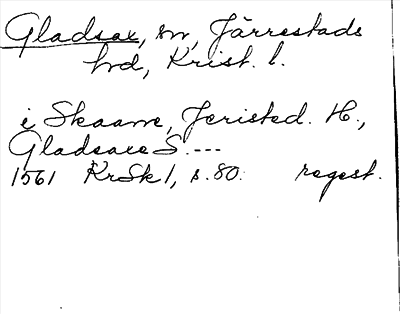 Gladsax, sn, Järrestads
hd, Krist. l.
i Skaane, Jeristed. H.,
Gladsaxe S. ---
1561 KrSk 1, s. 80. regest.